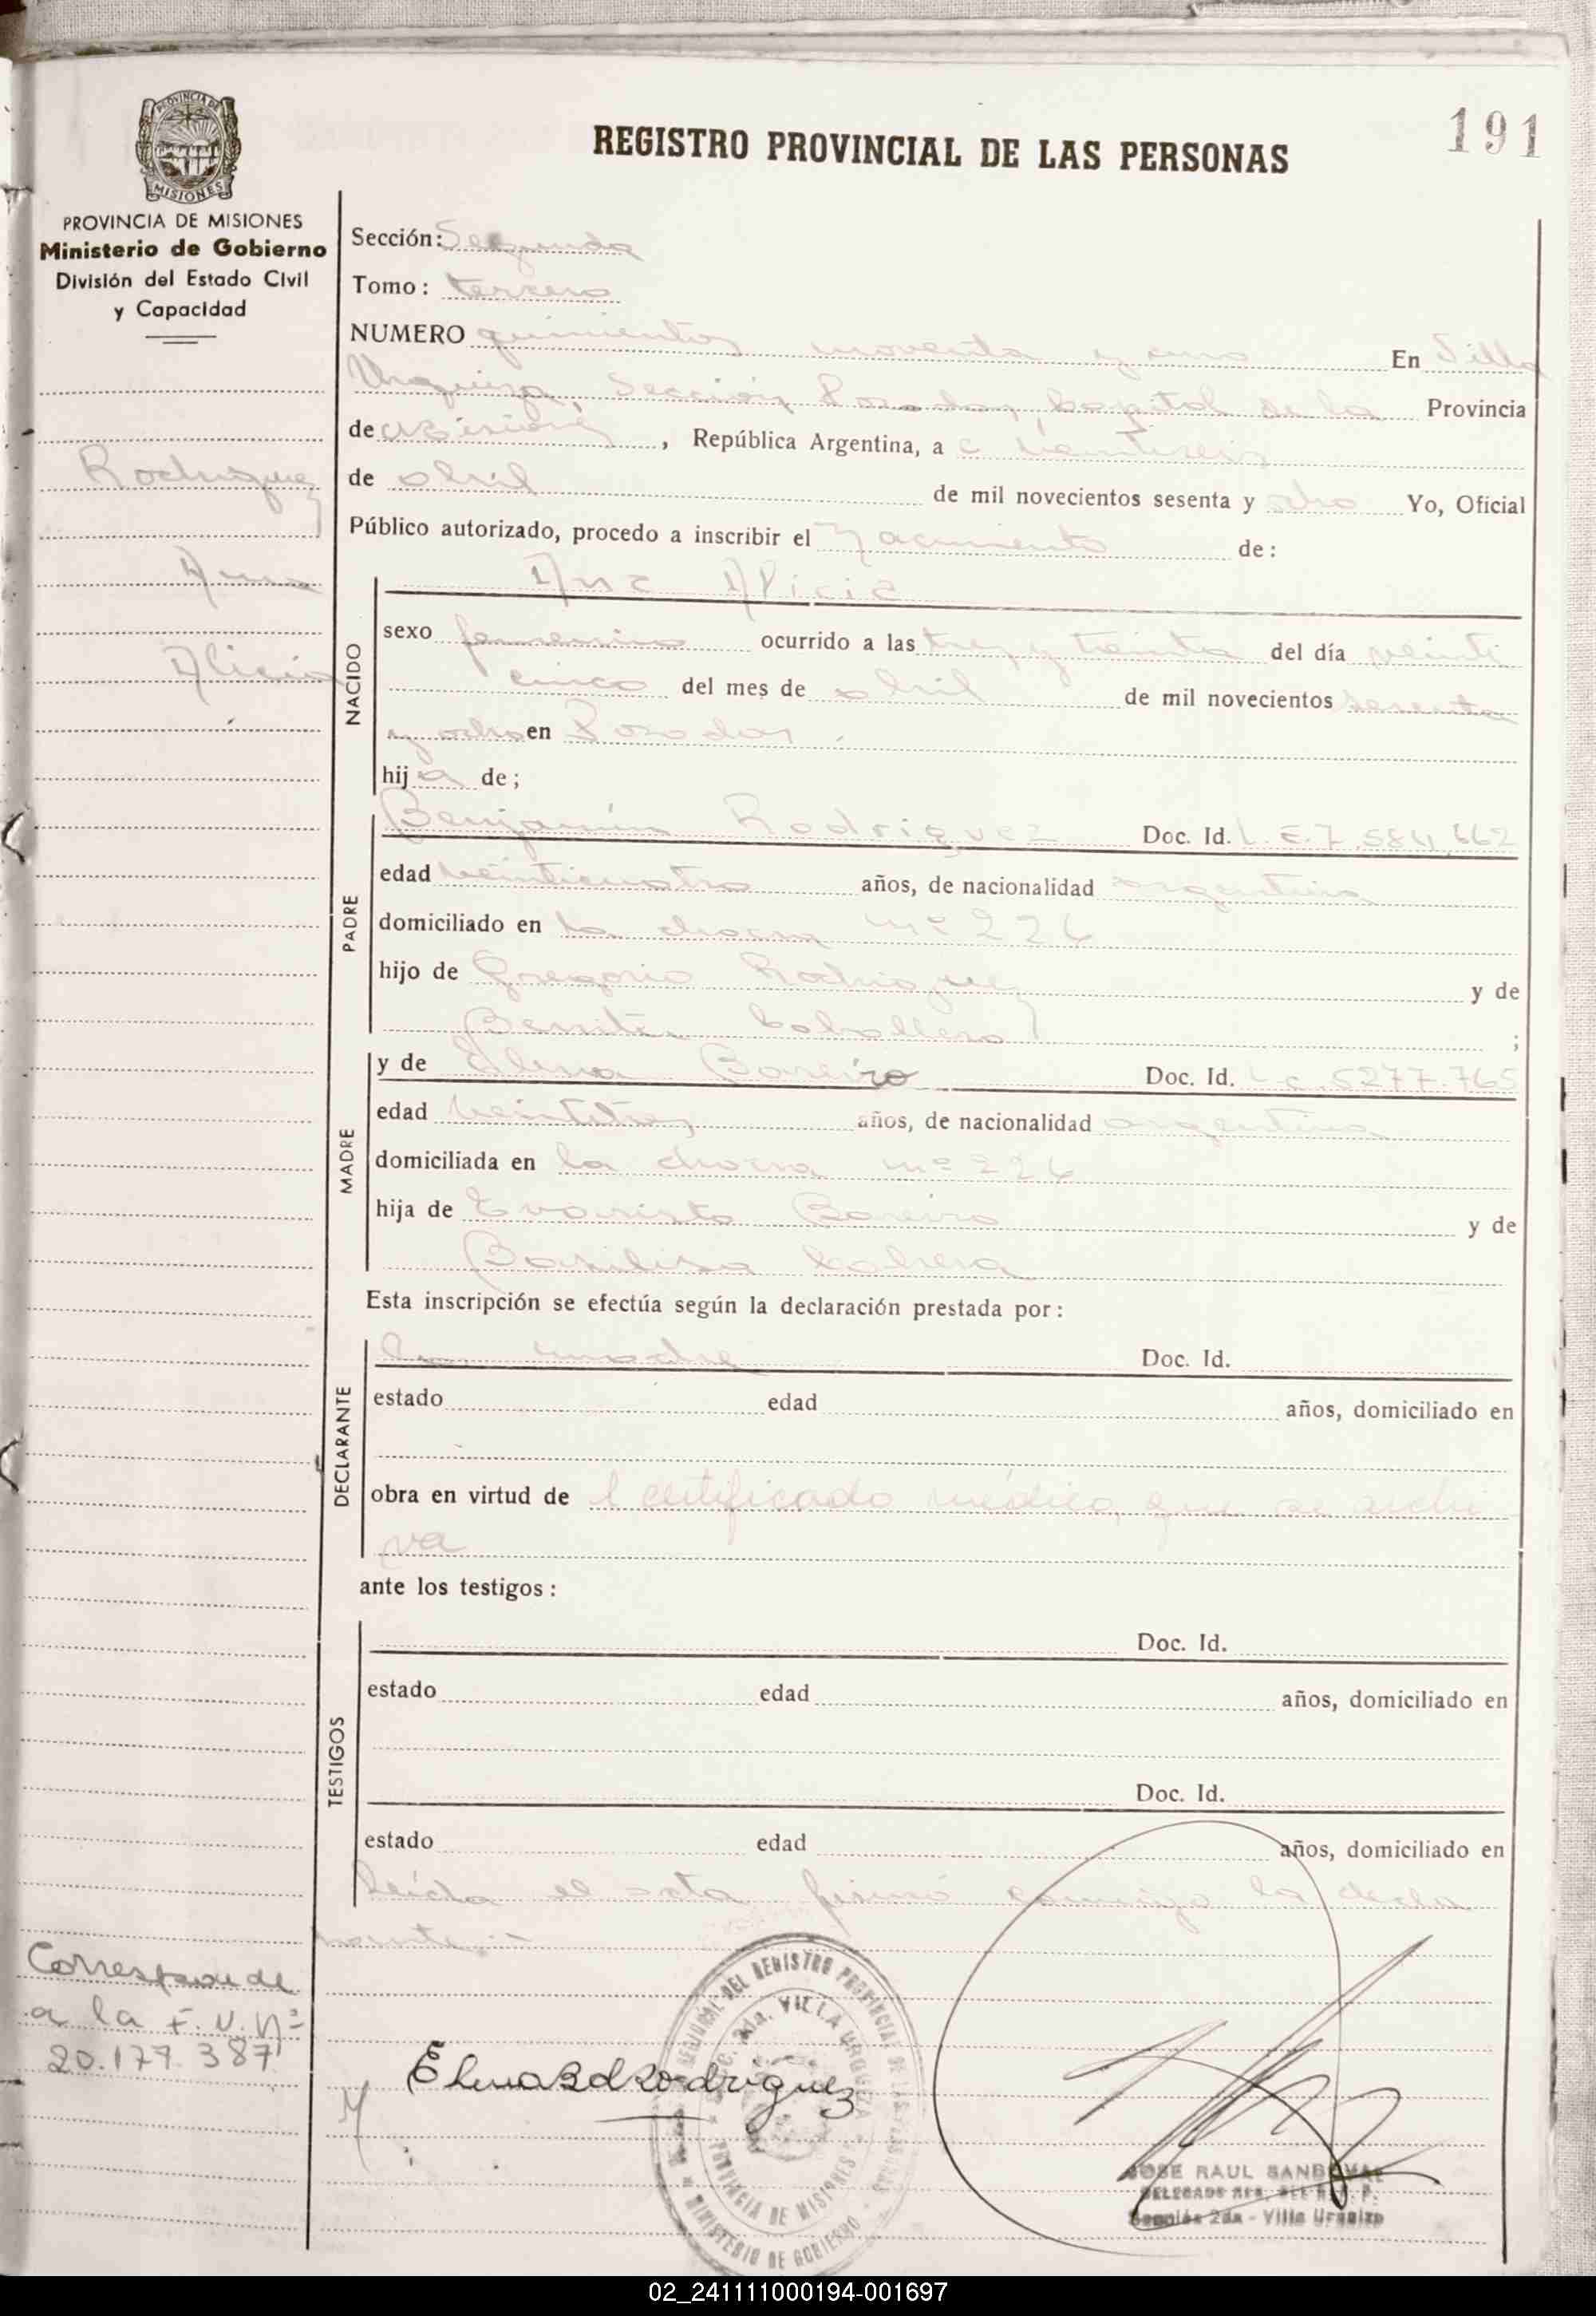 191
PROVINCIA DE MISIONES
REGISTRO PROVINCIAL DE LAS PERSONAS
PROVINCIA DE MISIONES
Ministerio de Gobierno
División del Estado Civil
y Capacidad
Sección: Segunda
Tomo: tercero
NUMERO quinientos noventa y uno En Villa
Urquiza, Sección Posadas, Capital de la Provincia
de Misiones, República Argentina, a veintiseis
de abril de mil novecientos sesenta y ocho Yo, Oficial
Público autorizado, procedo a inscribir el Nacimiento de:
Rodriguez
Ana
Alicia
NACIDO
Ana Alicia
sexo femenino ocurrido a las tres y treinta del día veinti
cinco del mes de abril de mil novecientos sesenta
y ocho en Posadas.
hija de;
PADRE
Benjamín Rodriguez Doc. Id. L.E.7.584.662
edad veinticuatro años, de nacionalidad argentina
domiciliado en la chacra nº 226
hijo de Gregorio Rodriguez y de
Benita Caballero ;
MADRE
y de Elena Boreiro Doc. Id. L.C. 5277.765
edad veintitres años, de nacionalidad argentina
domiciliada en la chacra nº 226
hija de Evaristo Boreiro y de
Basilisa Cabrera
Esta inscripción se efectúa según la declaración prestada por:
DECLARANTE
la madre Doc. Id.
estado edad años, domiciliado en
obra en virtud de l certificado médico que se archi
va
ante los testigos:
TESTIGOS
Doc. Id.
estado edad años, domiciliado en
Doc. Id.
estado edad años, domiciliado en
Leída el acta firmó conmigo la decla
rante.-
Corresponde
a la F. U. Nº
20.177.387
Elena B d Rodriguez
REGISTRO PROVINCIAL DE LAS PERSONAS
SECC. 2da. VILLA URQUIZA
PROVINCIA DE MISIONES
MINISTERIO DE GOBIERNO
JOSE RAUL SANDOVAL
Sección 2da - Villa Urquiza
02_241111000194-001697